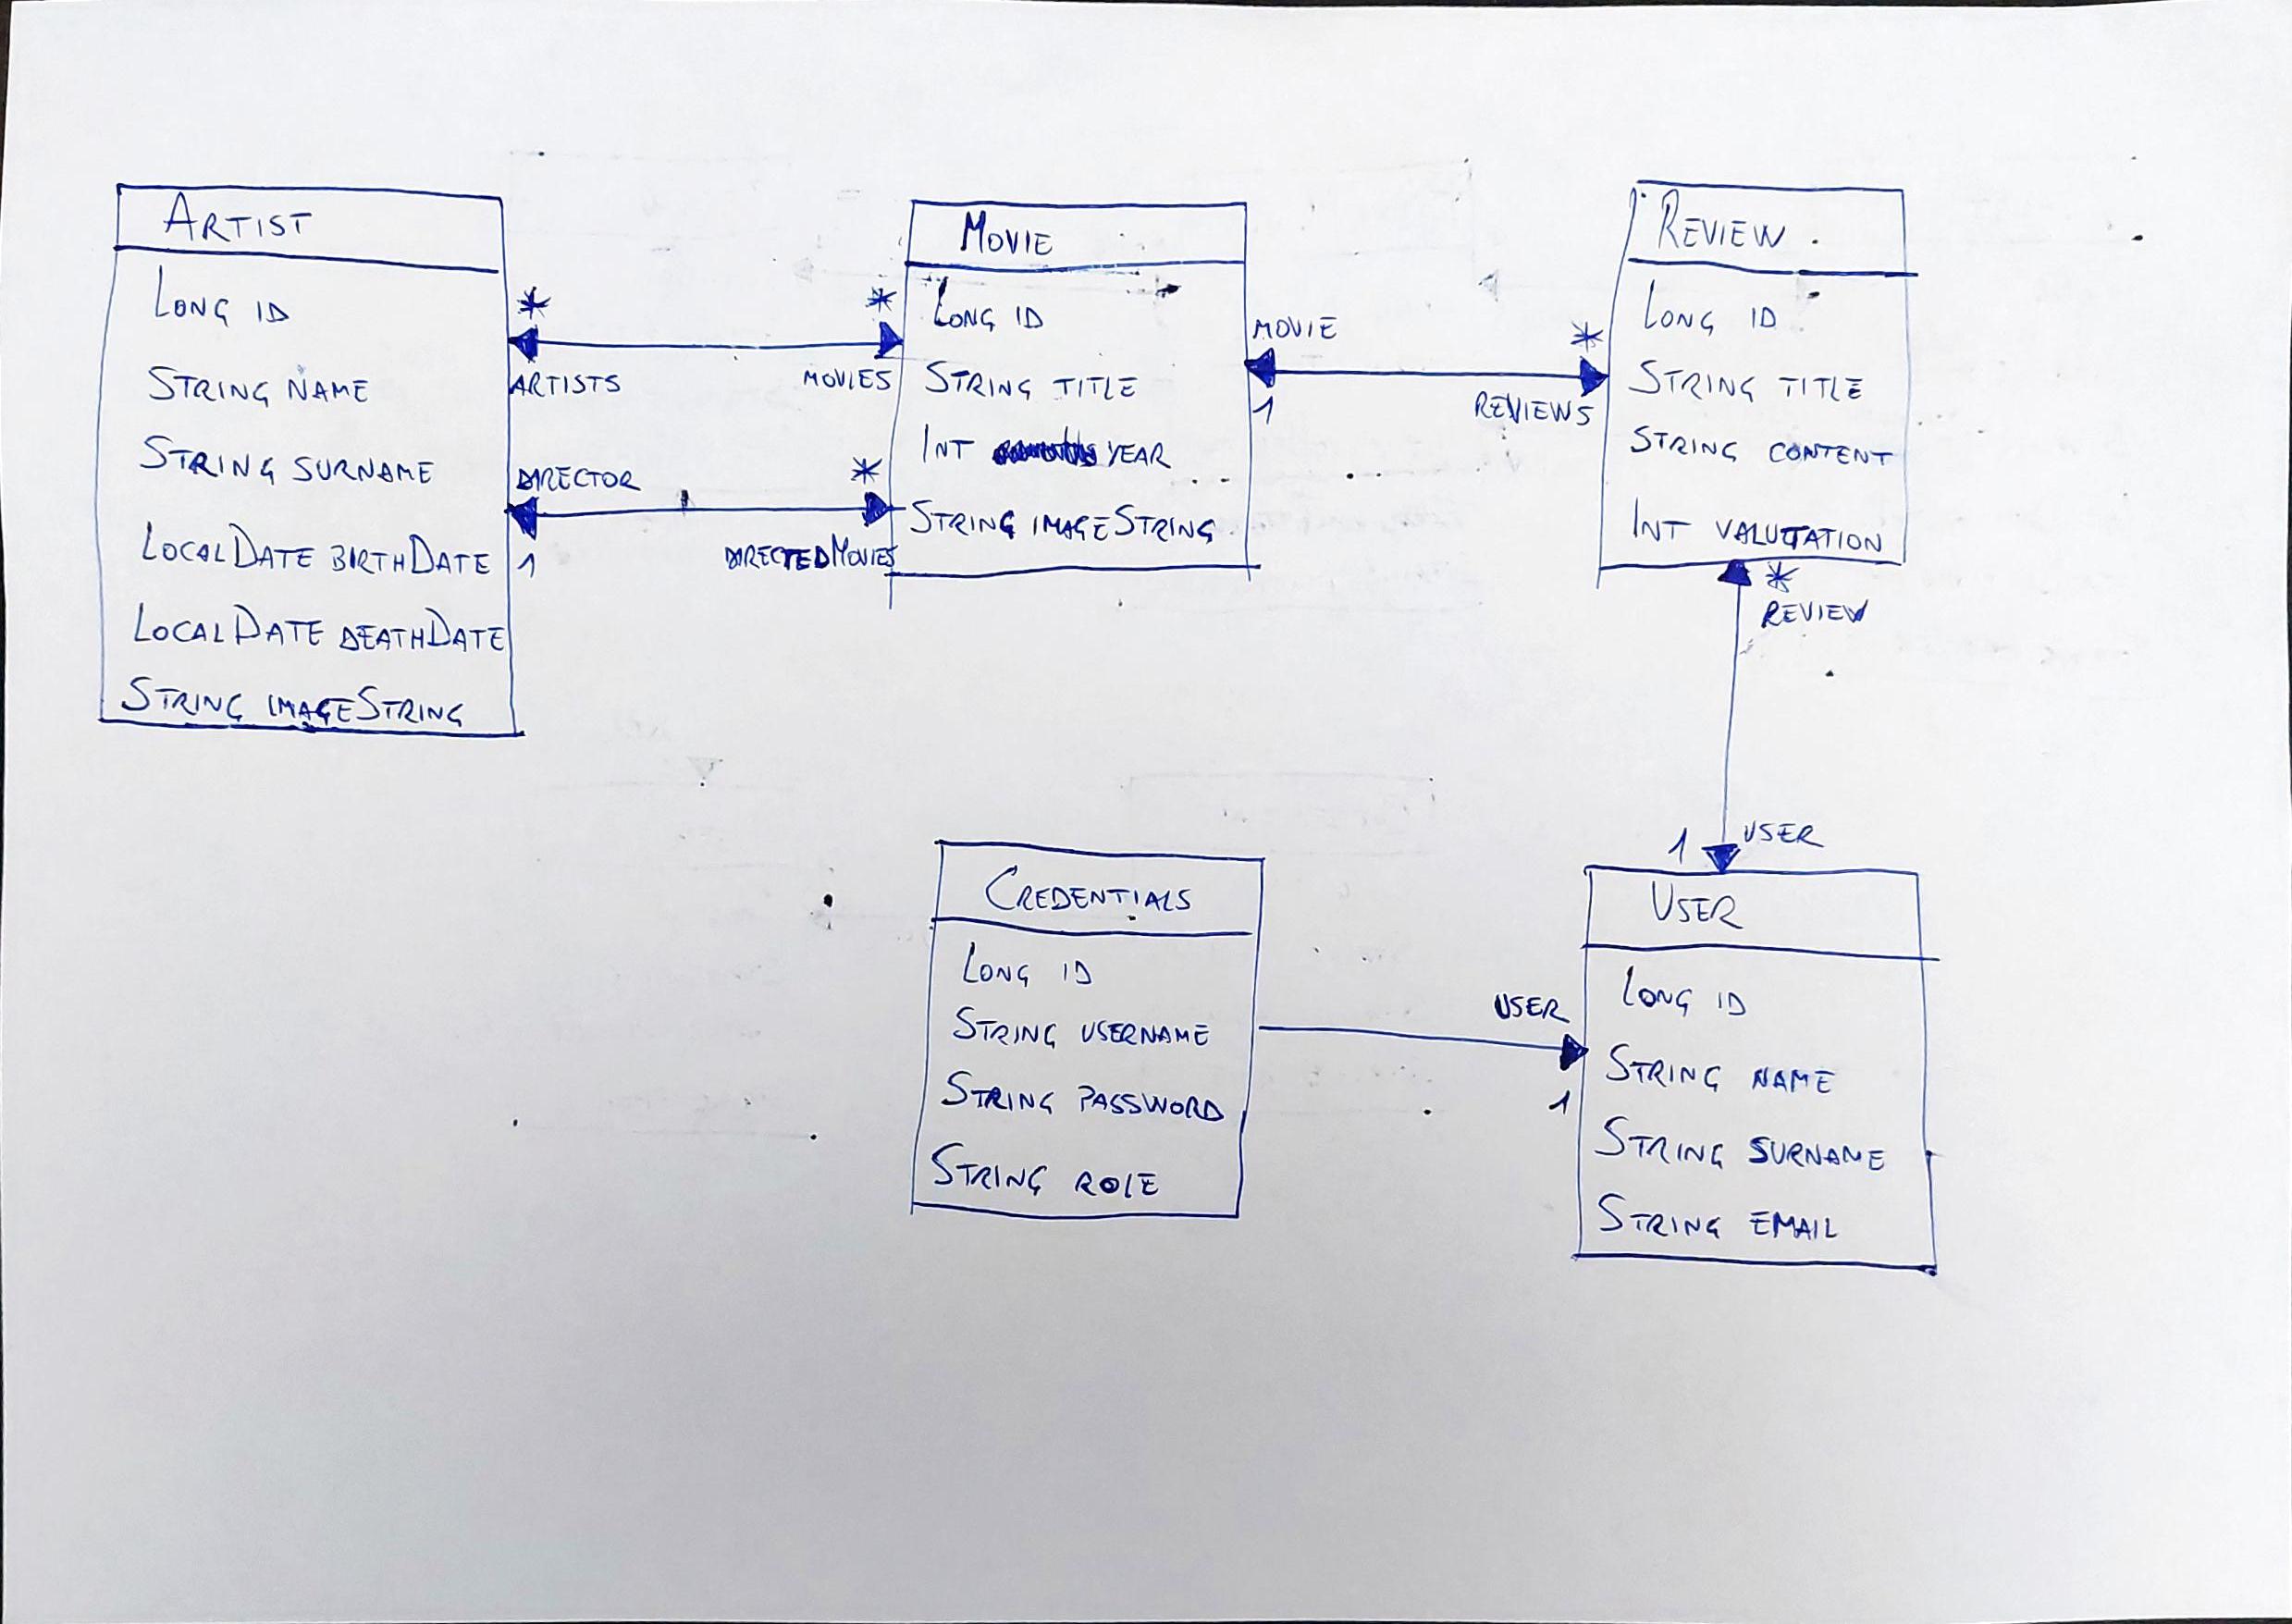 ARTIST
LONG ID
STRING NAME
STRING SURNAME
LOCALDATE BIRTHDATE
LOCALDATE DEATHDATE
STRING IMAGESTRING
*
*
ARTISTS
MOVIES
DIRECTOR
*
1
DIRECTEDMOVIES
MOVIE
LONG ID
STRING TITLE
INT YEAR
STRING IMAGESTRING
MOVIE
*
1
REVIEWS
REVIEW
LONG ID
STRING TITLE
STRING CONTENT
INT VALUTATION
*
REVIEW
1
USER
CREDENTIALS
LONG ID
STRING USERNAME
STRING PASSWORD
STRING ROLE
USER
1
USER
LONG ID
STRING NAME
STRING SURNAME
STRING EMAIL